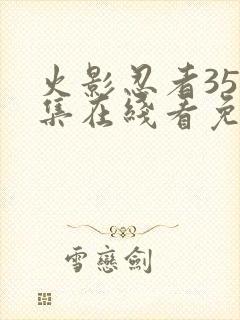 火影忍者35
集在綫看免
雪戀劍